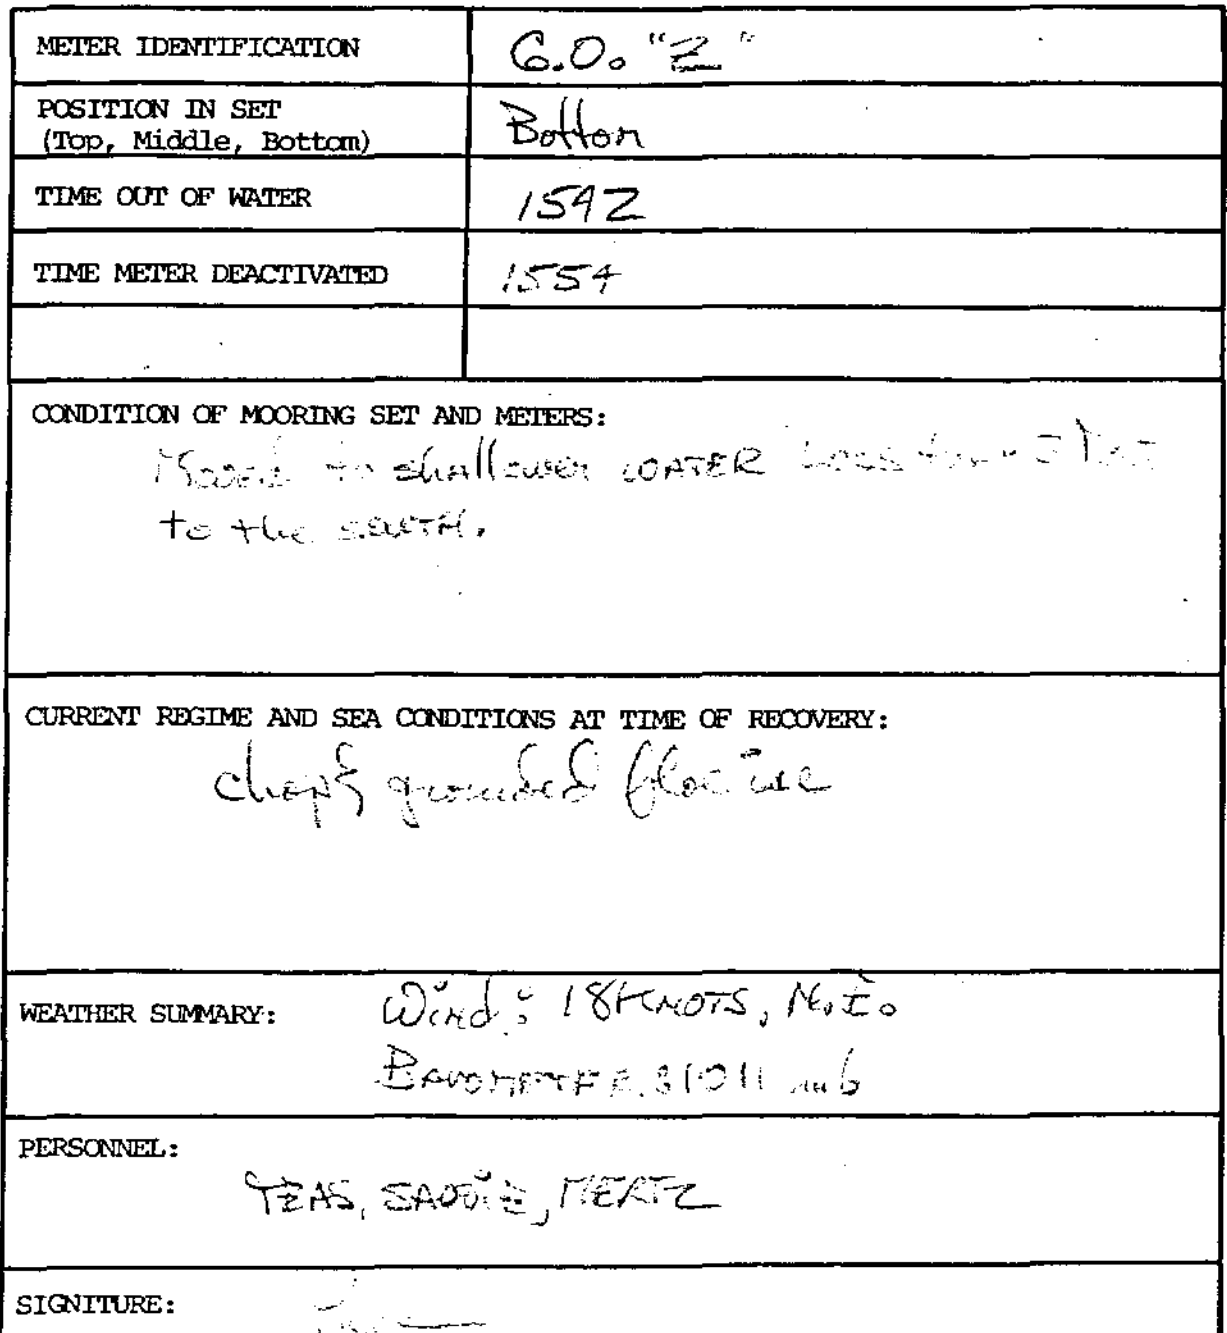 METER IDENTIFICATION G.O. "2"
POSITION IN SET
(Top, Middle, Bottom) Bottom
TIME OUT OF WATER 1542
TIME METER DEACTIVATED 1554
CONDITION OF MOORING SET AND METERS:
Moved to shallower WATER
to the SOUTH.
CURRENT REGIME AND SEA CONDITIONS AT TIME OF RECOVERY:
chop & grounded floe ice
WEATHER SUMMARY: Wind: 18 KNOTS, N.E.
BAROMETER: 1011 mb
PERSONNEL:
TEAS, MERTZ
SIGNITURE: